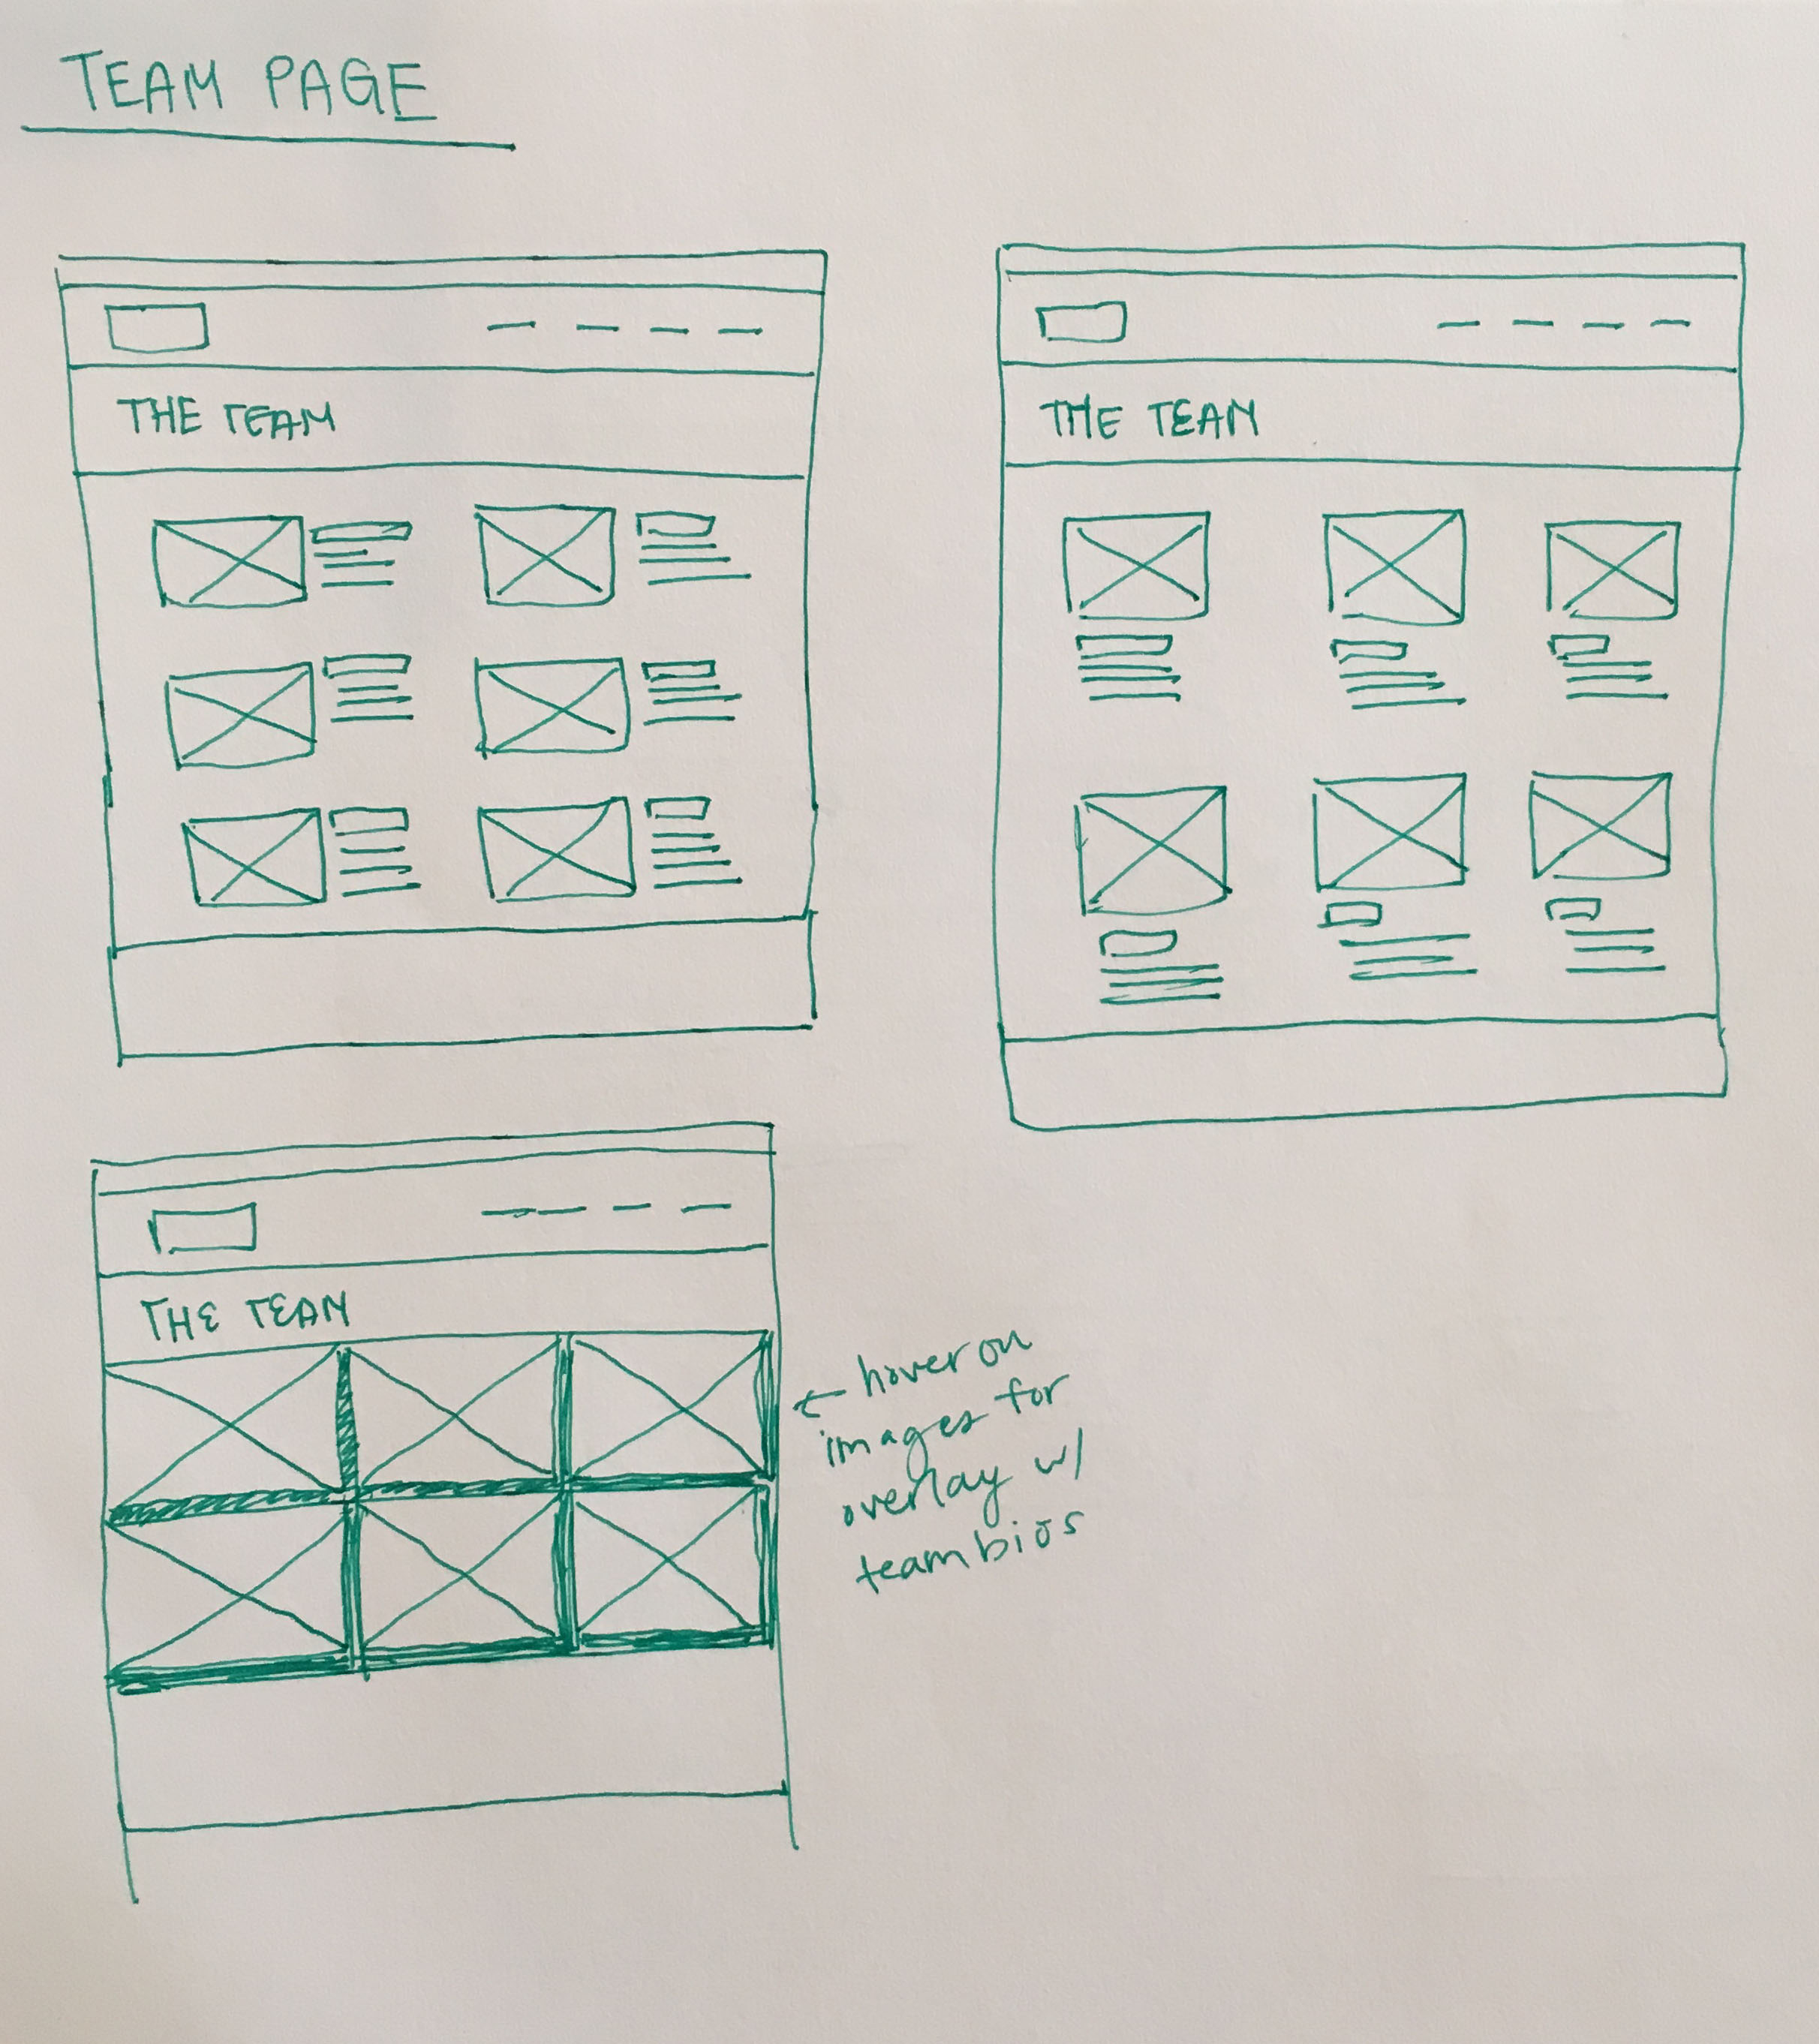 TEAM PAGE
THE TEAM
THE TEAM
THE TEAM
← hover on
images for
overlay w/
team bios